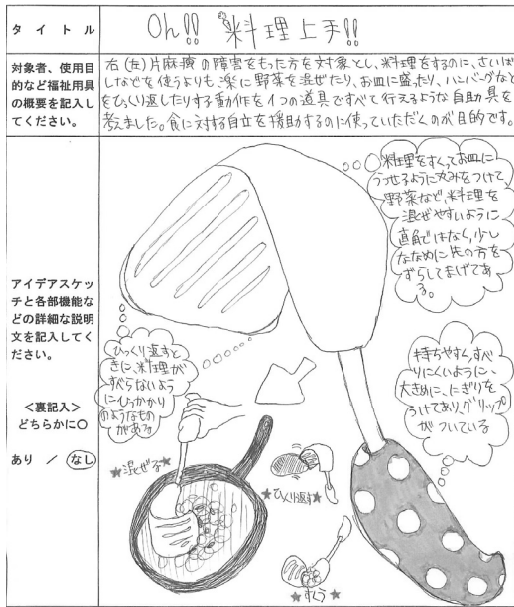 タイトル
Oh!! 料理上手!!
対象者、使用目
的など福祉用具
の概要を記入し
てください。
右(左)片麻痺の障害をもった方を対象とし、料理をするのに、さいば
しなどを使うよりも、楽に野菜を混ぜたり、お皿に盛ったり、ハンバーグなど
をひっくり返したりする動作を1つの道具ですべて行えるような自助具を
考えました。食に対する自立を援助するのに使っていただくのが目的です。
アイデアスケッ
チと各部機能な
どの詳細な説明
文を記入してく
ださい。
<裏記入>
どちらかに○
あり / なし
料理をすくってお皿に
うつせるように丸みをつけて、
野菜など、料理を
混ぜやすいように
直角ではなく、少し
ななめに先の方を
ずらしてまげてあ
る。
ひっくり返すと
きに、料理が
すべらないよう
にひっかかり
のようなもの
がある
持ちやすく、すべ
りにくいように、
大きめに、にぎりを
つけてあり、グリップ
がついている
★混ぜる★
★ひっくり返す★
★すくう★